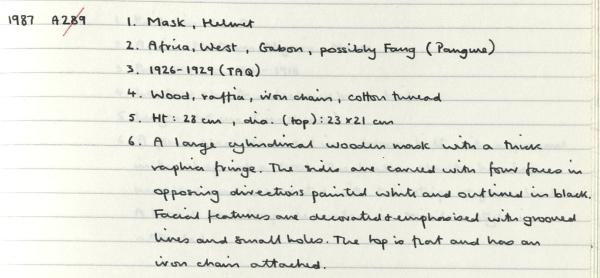 1987 A289 1. Mask, Helmet
2. Africa, West, Gabon, possibly Fang (Pangwe)
3. 1926-1929 (TAQ)
4. Wood, raffia, iron chain, cotton thread
5. Ht: 28 cm, dia. (top): 23 x 21 cm
6. A large cylindrical wooden mask with a thick
raphia fringe. The sides are carved with four faces in
opposing directions painted white and outlined in black.
Facial features are decorated & emphasised with grooved
lines and small holes. The top is flat and has an
iron chain attached.